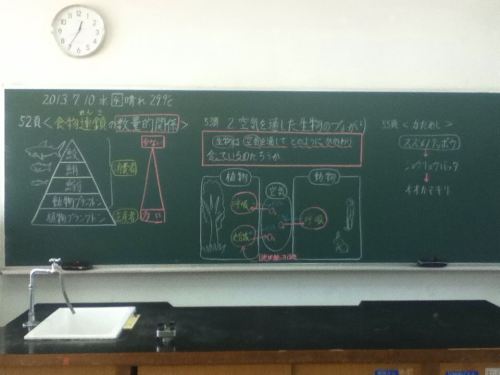 2013.7.10 水 晴れ 29℃
52頁<食物連鎖の数量的関係>
れんさ
少ない
消費者
動物プランクトン
植物プランクトン
生産者
多い
53頁 2.空気を通した生物のつながり
生物は空気を通してどのようにかかわり
合っているのだろうか
植物
空気
動物
呼吸
O₂
呼吸
O₂
55頁<ためし>
ショウリョウバッタ
オオカマキリ